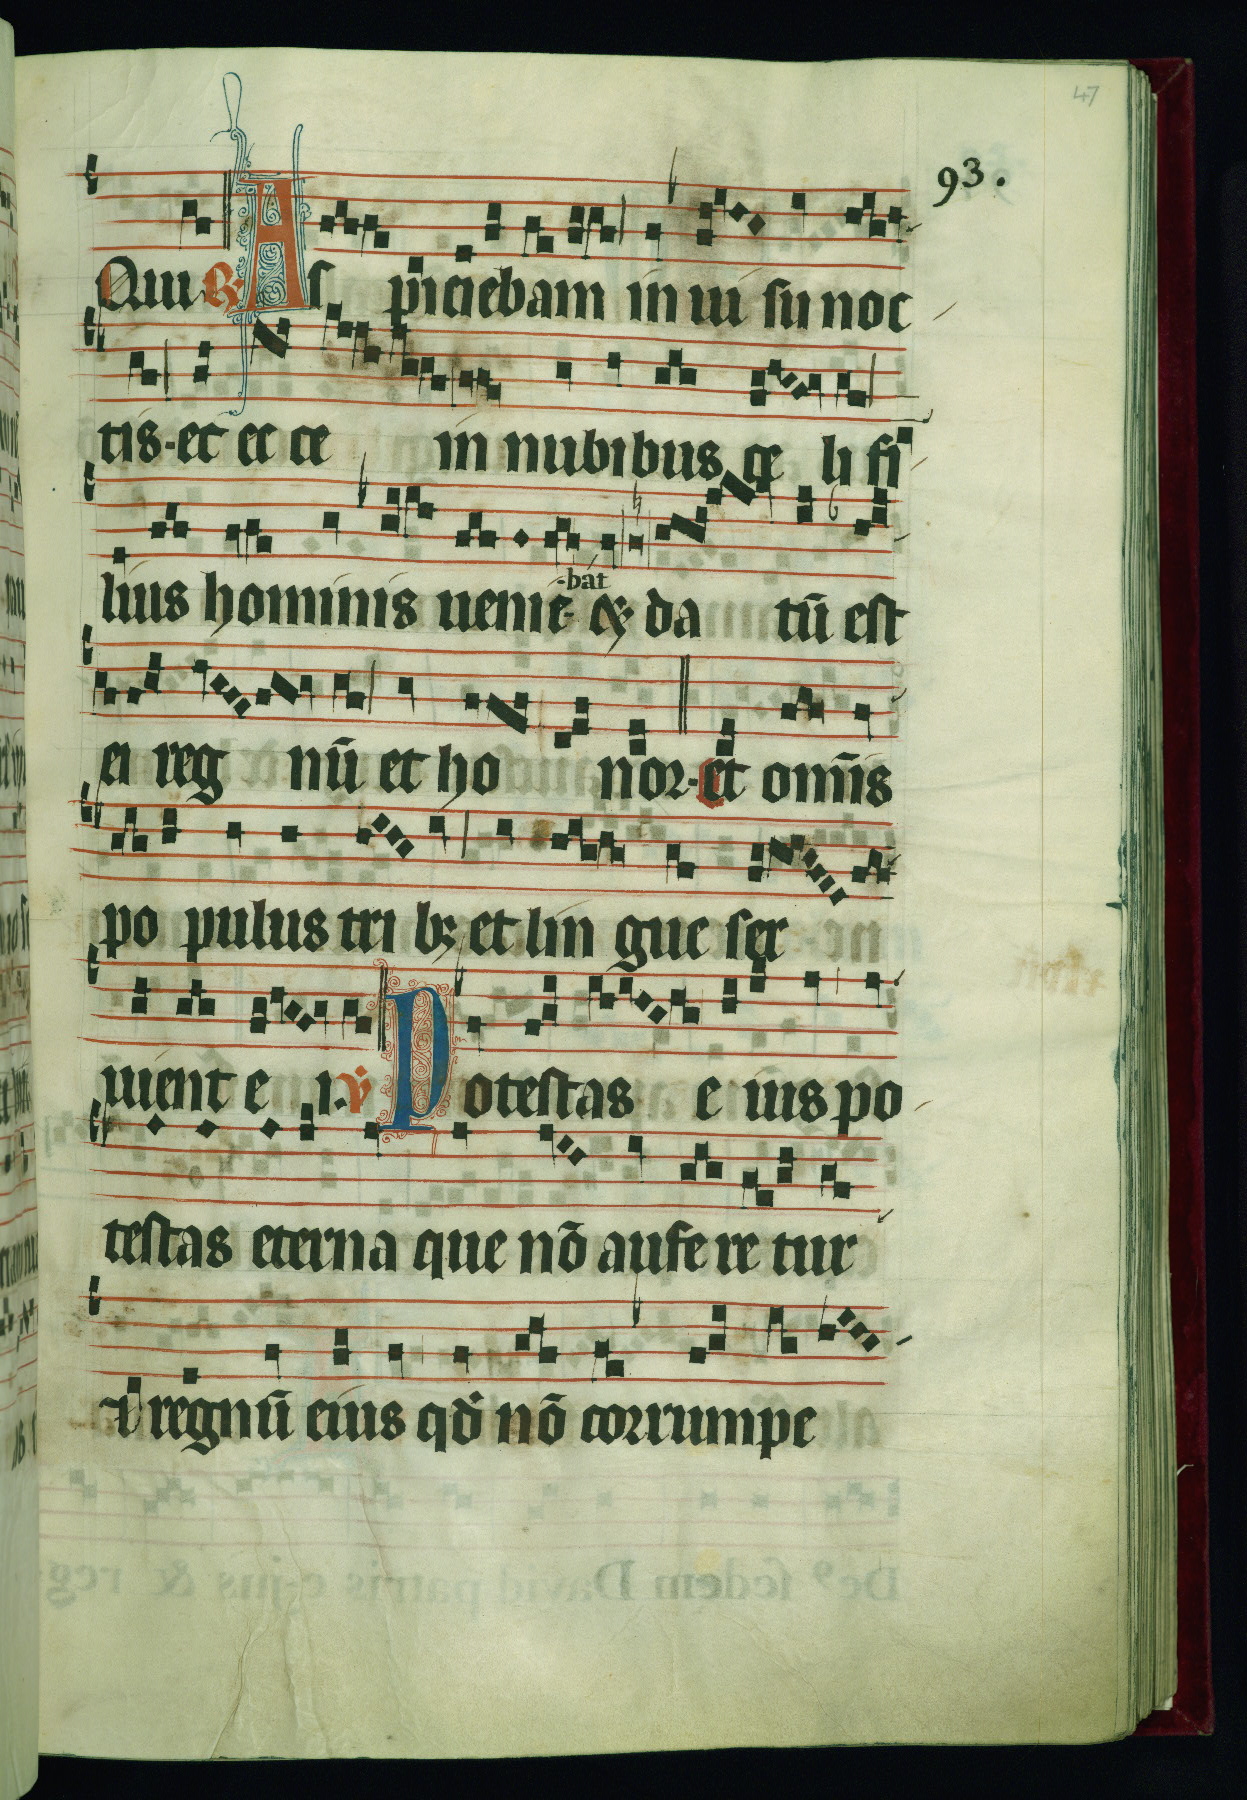 47
93.
Qui ℟ As piciebam in ui su noc
tis·et ec ce in nubibus ce li fi
lius hominis uenie·bat & da tū est
ei reg nū et ho nor·et omīs
po pulus tri bꝫ et lin gue ser
uient e i·℣ Potestas e ius po
testas eterna que nō aufe re tur
regnū eius qđ nō corrumpe